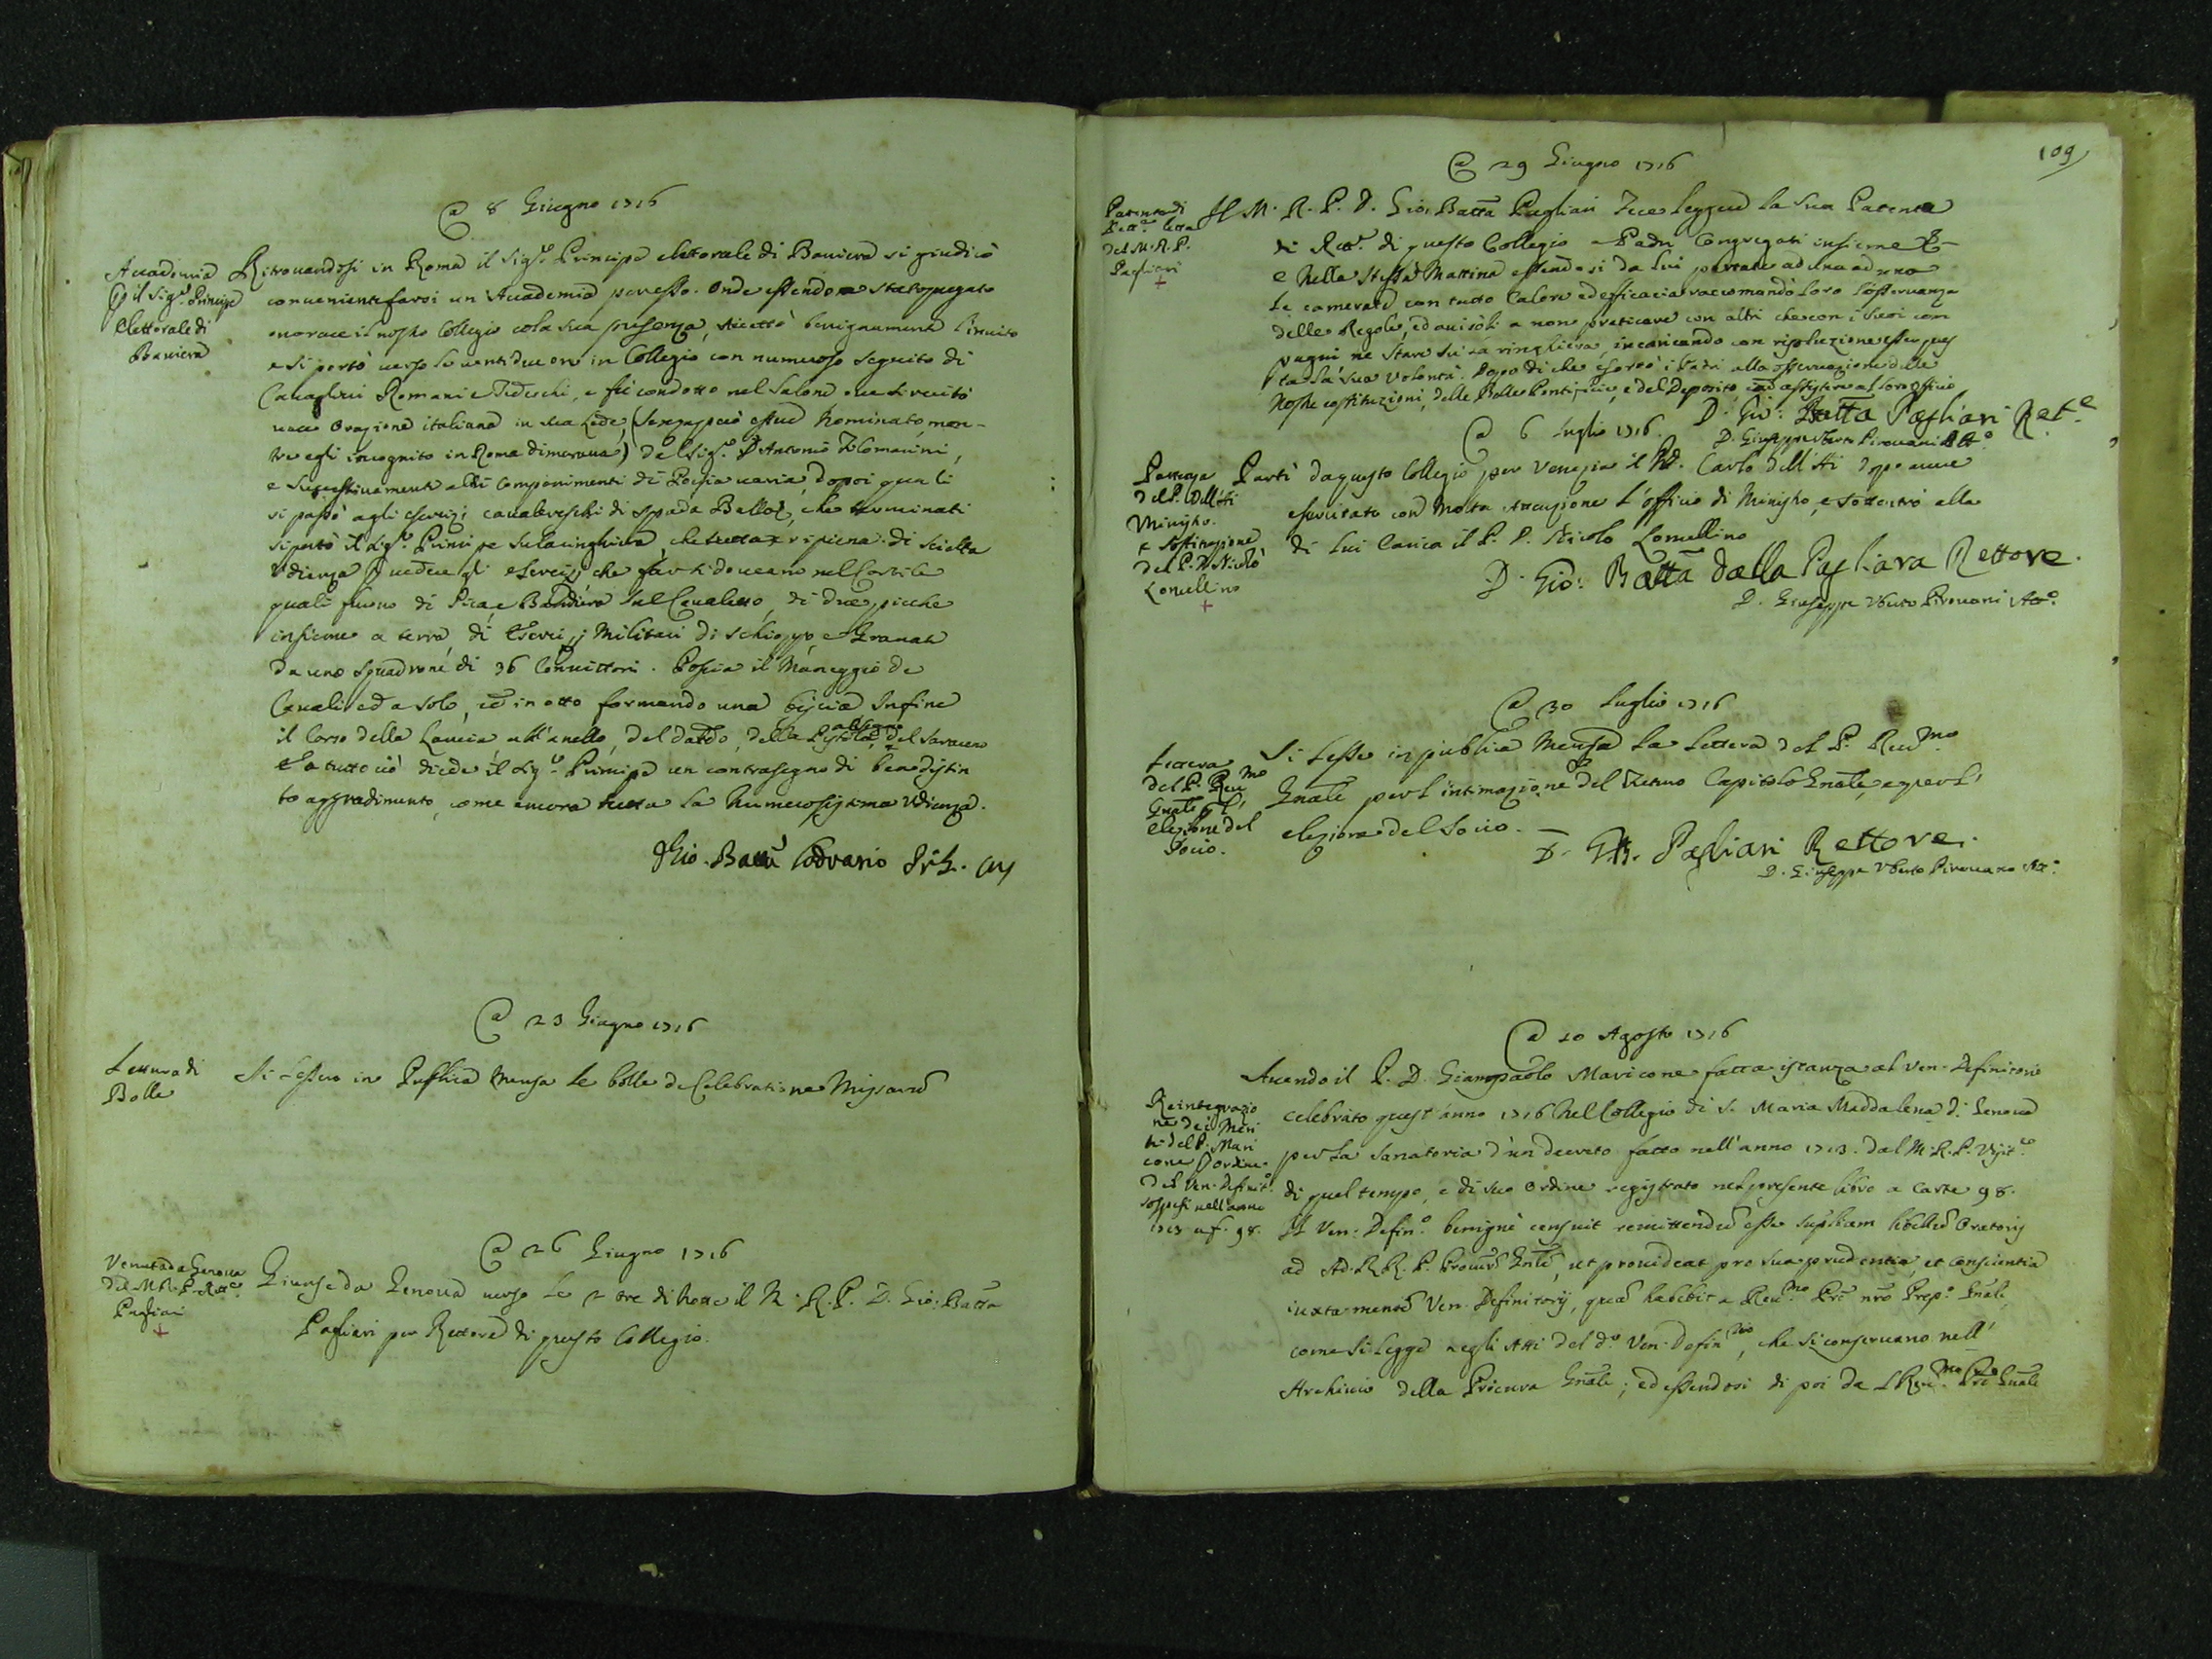 A 8 Giugno 1716
Accademia
p il Sig.r Principe
Elettorale di
Baviera
Ritrovandosi in Roma il Sig.r Principe elettorale di Baviera si giudicò
conveniente farsi un Accademia per esso. Onde essendone stato pregato
onorare il nostro Collegio colla sua presenza, accettò benignamente l'invito
e si portò verso le ventidue ore in Collegio con numeroso seguito di
Cavaglieri Romani e Tedeschi, e fù condotto nel Salone ove si recitò
una Orazione italiana in sua Lode, (senza però esser Nominato, men-
tre egli incognito in Roma dimorava) dal Sig.r D. Antonio Tolomarini,
e successivamente altri Componimenti di Poesia varia, dopoi quali
si passò agli esercizj cavalereschi di spada Ballo, che terminati
si portò il Sig.r Principe su la ringhiera, che tutta ripiena di scielta
Udienza p vedere gli esercizj che far si dovevano nel Cortile
quali furono di Picca e Bandiera sul Cavaletto, di due picche
insieme a terra, di Esercizj Militari di schioppo e Granate
da uno squadrone di 36 Convittori. Poscia il Maneggio de
Cavalli ed a solo, ed in otto formando una biscia Infine
il Corso della Lancia all'anello, del dardo, della Pistola al segno, del Saraceno
E a tutto ciò diede il Sig.r Principe un contrasegno di ben distin
to aggradimento, come ancora tutta la Numerosissima Udienza.
Gio. Batta Lodvasio
A 23 Giugno 1716
Lettura di
Bolle
Si lessero in Publica Mensa le bolle de Celebratione Missarum
A 26 Giugno 1716
Venuta da Genova
del M.R.P. Rett.e
Pagliari
Giunse da Genova verso le 2 ore di Notte il M. R. P. D. Gio: Batta
Pagliari per Rettore di questo Collegio.
109
A 29 Giugno 1716
Patente di
Rett.e letta
del M.R.P.
Pagliari
Il M. R. P. D. Gio: Batta Pagliari Fece leggere la sua Patente
di Rett.e di questo Collegio a Padri Congregati insieme
e Nella Stessa Mattina essendosi da lui portate ad una ad una
le camerate con tutto Calore ed efficacia raccomandò loro l'osservanza
delle Regole, ed avisòli a non praticare con altri che con i suoi com
pagni ne stare su la ringhiera, incaricando con risoluzione esser ques
ta la sua volontà. Dopo di che esortò i Padri alla osservazione delle
Nostre costituzioni, delle Bolle Pontificie, e del Deposito, ed assistere al loro officio
D. Gio: Batta Pagliari Ret.e
D. Giuseppe Uberto Pirovani Att.o
A 6 Luglio 1716.
Partenza
del P. Dell'Ati
Ministro.
e Sostituzione
del P. D. Nicolò
Lomellino
Partì da questo Collegio per Venezia il P. D. Carlo dell'Ati dopo aver
esercitato con Molta attenzione l'officio di Ministro, e sottentrò alla
di lui Carica il P. D. Nicolo Lomellino
D. Gio: Batta dalla Pagliara Rettore.
D. Giuseppe Uberto Pirovani Att.o
A 30 Luglio 1716
Lettera
del P. Rev.mo
Gnale p l'
elezione del
Socio.
Si lesse in publica Mensa la Lettera del P. Rev.mo
Gnale per l'intimazione del futuro Capitolo Gnale, e per l'
elezione del Socio.
D. G.B. Pagliari Rettore.
D. Giuseppe Uberto Pirovano Att.o
A 10 Agosto 1716
Reintegrazio
ne dei Meri
ti del P. Mari
cone p ordine
del Ven. Definit.o
sospesi nell'anno
1713 a f. 98.
Avendo il P. D. Giampaolo Maricone fatta istanza al Ven. Definitorio
celebrato quest'anno 1716 Nel Collegio di S. Maria Maddalena di Genova
per la sanatoria d'un decreto fatto nell'anno 1713. dal M.R.P. Visit.e
di quel tempo, e di suo Ordine registrato nel presente libro a carte 98.
Il Ven. Defin.o benignè censuit remittendum esse supliam libellum Oratoris
ad Ad. R.R. P. Provlem Gnlem, ut provideat pro sua prudentia, et conscientia
iuxta mentem Ven. Definitorij, quam habebit a Rev.mo Pre nro Prep.o Gnali,
come si legge negli Atti del d.o Ven. Defin.rio, che si conservano nell'
Archivio della Procura Gnale; ed essendosi di poi dal Rev.mo Pre Gnale